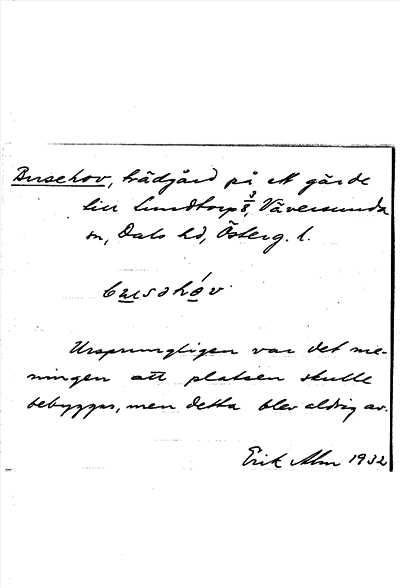 Bursehov, trädgård på ett gärde
till Lundtorp 3/8, Väversunda
sn, Dals hd, Österg. l.
Ursprungligen var det me-
ningen att platsen skulle
bebyggas, men detta blev aldrig av.
Erik Alm 1932